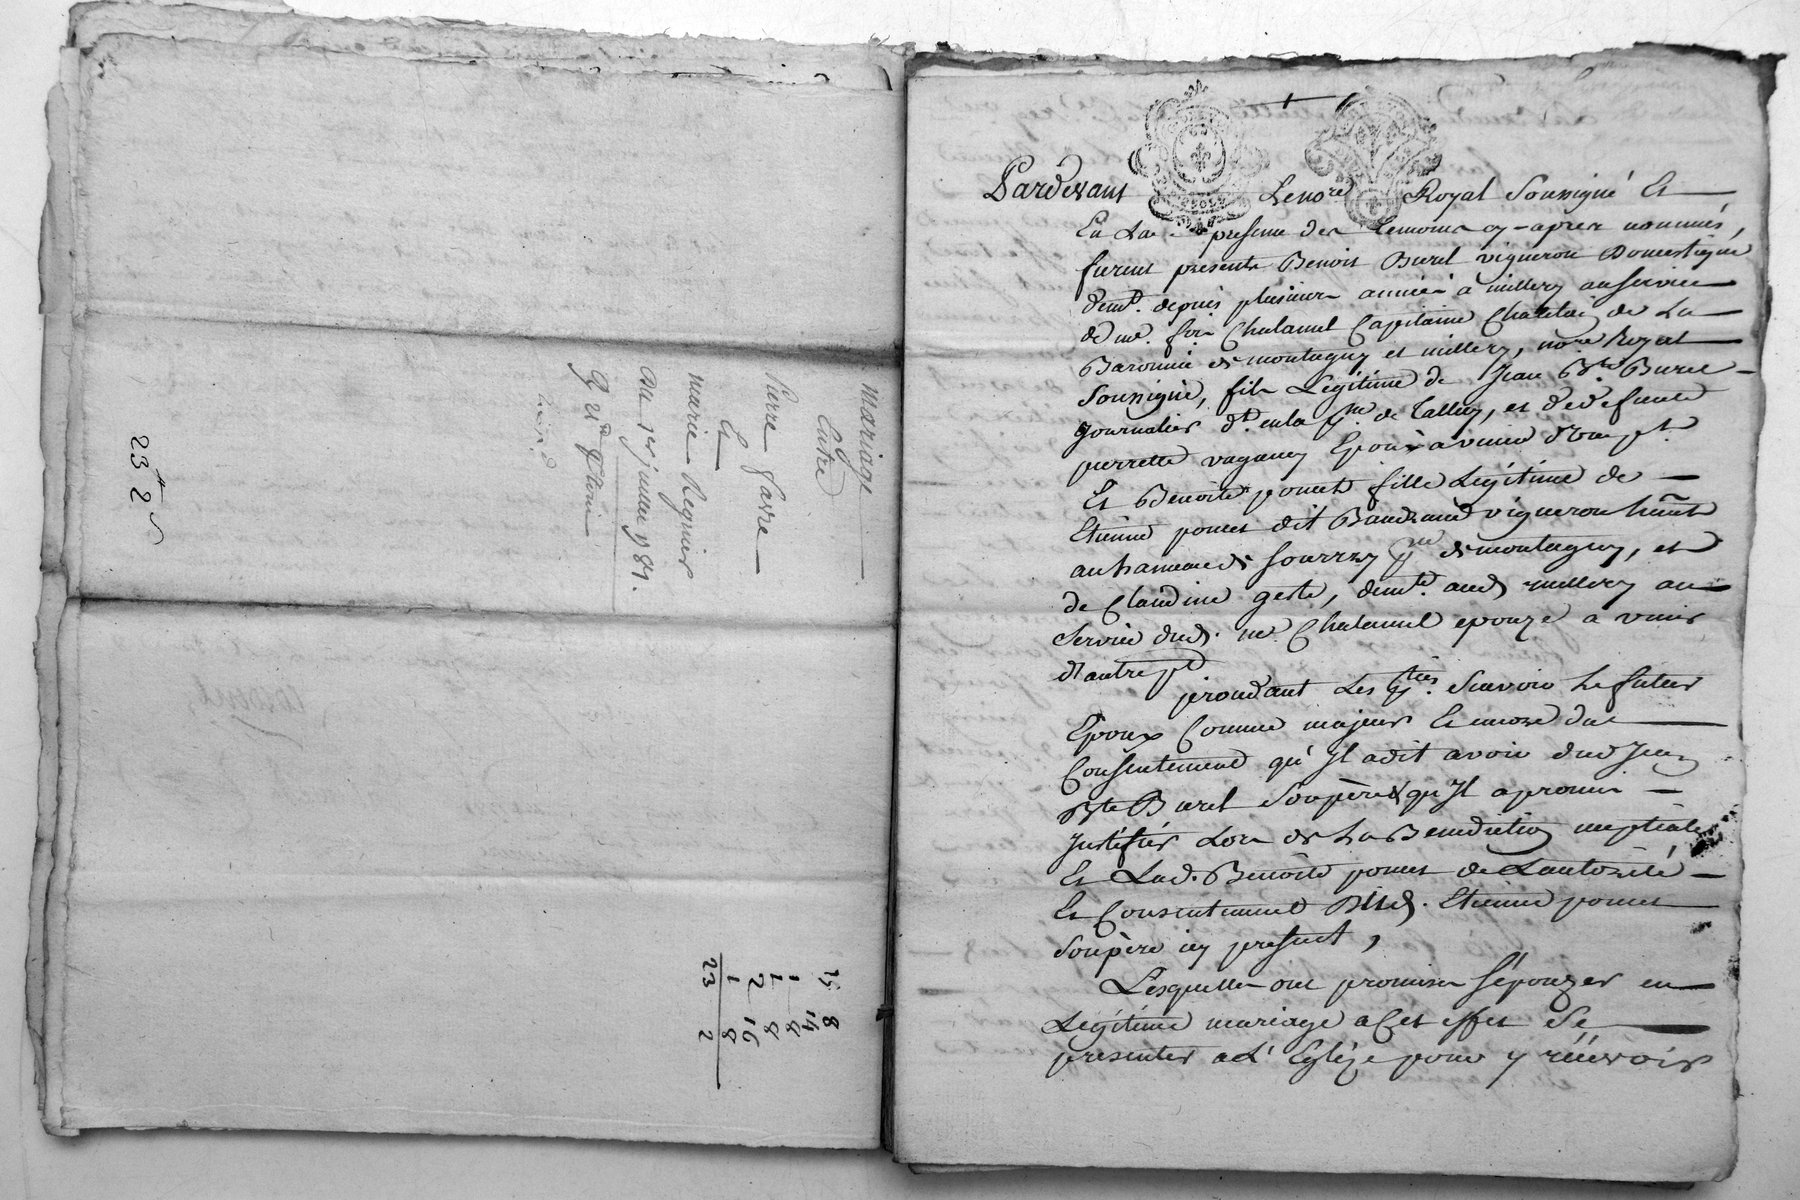 mariage
Entre
Pierre favre
Et
marie Regnier
Du 1er juillet 1781.
23# 2 s
15 8
1 14
1 8
2 8
1 16
1 8
23 2
Pardevant Le nore Royal Soussigné Et
En La presence des temoins cy-apres nommés,
furent presents Benoit Burel vigneron Domestique
demt. depuis plusieurs années a millery au service
de me. Chalamel Capitaine Chatelain de La
Baronnie de montagny et millery, nore Royal
Soussigné, fils Legitime de Jean Bte Burel
Journalier dt. en la de Talluy, et de defunte
pierrette vaganey Epoux a venir d'une pt.
Et Benoite ponet fille Legitime de
Etienne ponet dit vigneron habt
au hameau de Sourzy de montagny, et
de Claudine geste, demte. aud millery au
Service dud. me. Chalamel epouze a venir
d'autre pt
procedant Les pties. Scavoir Le futur
Epoux Comme majeur Et encore du
Consentement qu'Il a dit avoir dud Jean
Bte Burel Son père & qu'Il a promis
Justifier Lors de La Benediction nuptiale
Et Lad. Benoite ponet de L'autorité
Et Consentement dud. Etienne ponet
Son père icy present,
Lesquelles ont promises s'épouzer en
Legitime mariage a Cet effet Se
presenter a L'Eglize pour y recevoir